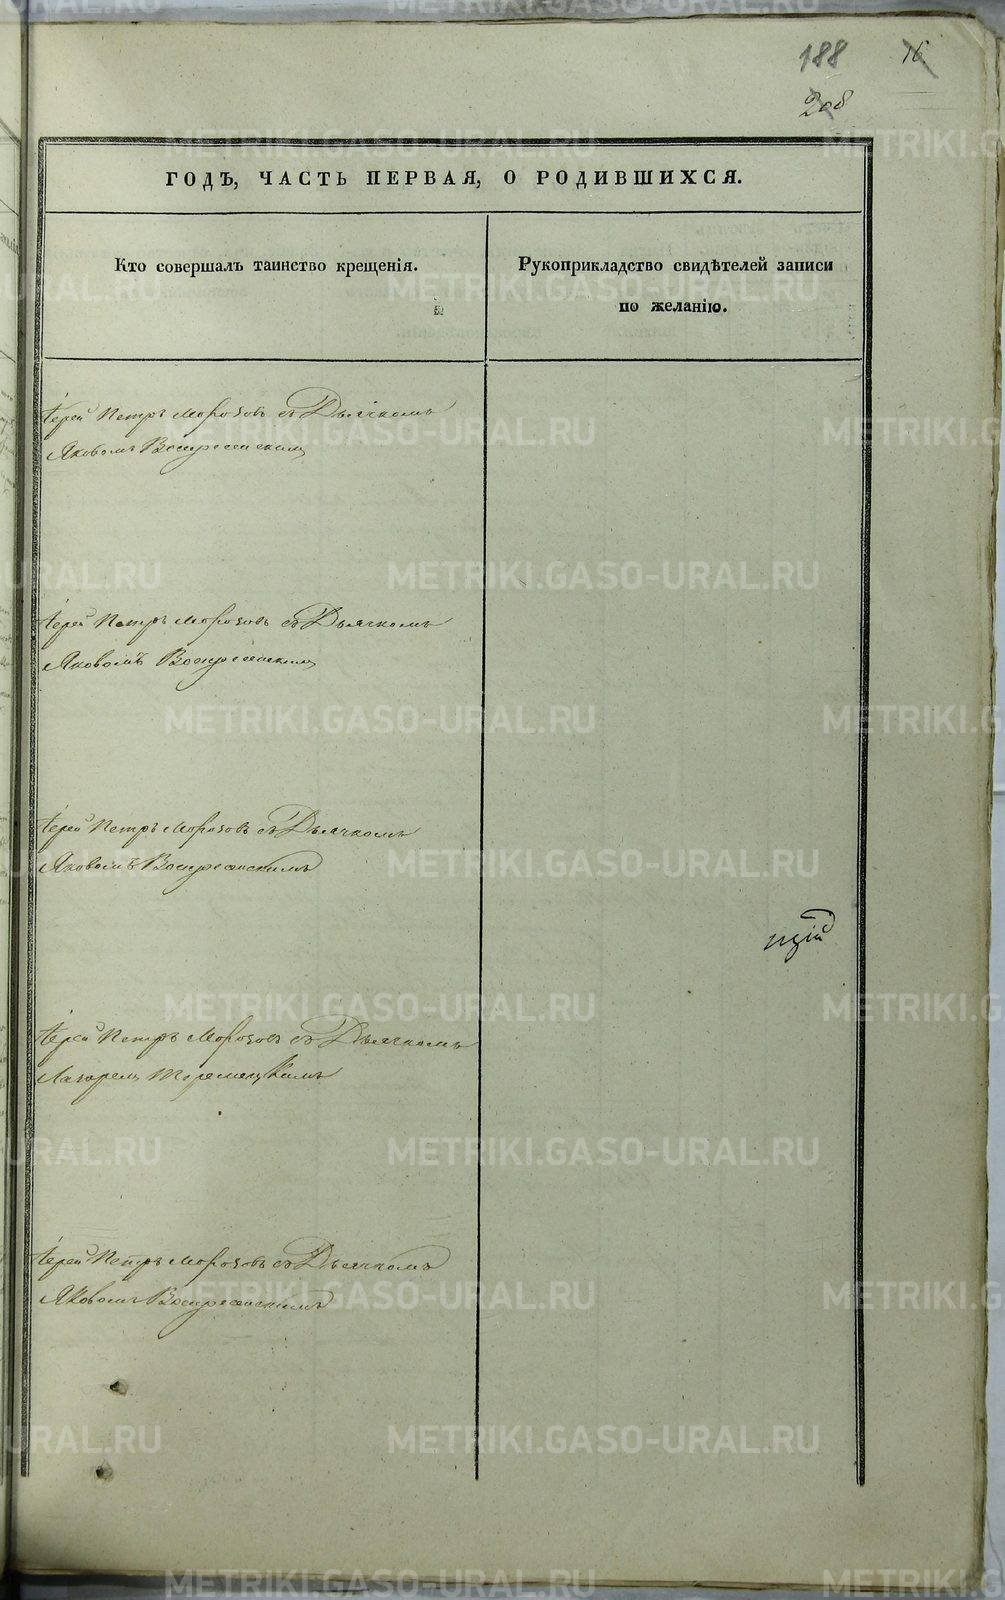 188
16
208
ГОДЪ, ЧАСТЬ ПЕРВАЯ, О РОДИВШИХСЯ.
Кто совершалъ таинство крещенія.
Рукоприкладство свидѣтелей записи
по желанію.
Іерей Петръ Морозовъ съ Дьячкомъ
Яковомъ Воскресенским
Іерей Петръ Морозовъ съ Дьячкомъ
Яковомъ Воскресенским
Іерей Петръ Морозовъ съ Дьячкомъ
Яковомъ Воскресенскимъ
Іерей Петръ Морозовъ съ Дьячкомъ
Лазарем
Іерей Петръ Морозовъ съ Дьячкомъ
Яковомъ Воскресенскимъ
METRIKI.GASO-URAL.RU